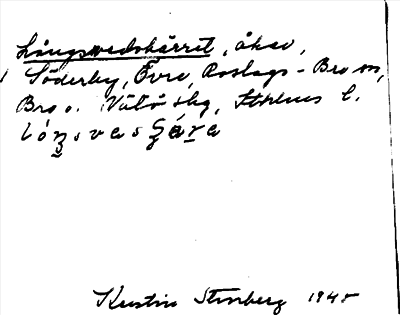 Långsvedskärret, åker,
Söderby, Övre, Roslags-Bro sn,
Bro o. Vätö skg, Sthlms l.
Kerstin Stenberg 1945